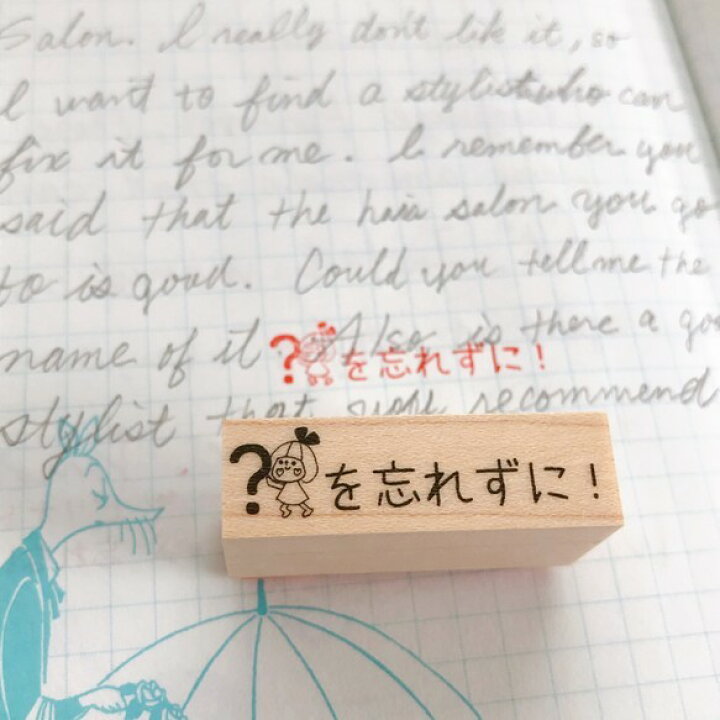 Salon. I really don't like it, so
I want to find a stylist who can
fix it for me. I remember you
said that the hair salon you go
to is good. Could you tell me the
name of it? Also is there a go
?を忘れずに！
stylist that recommend
?を忘れずに！